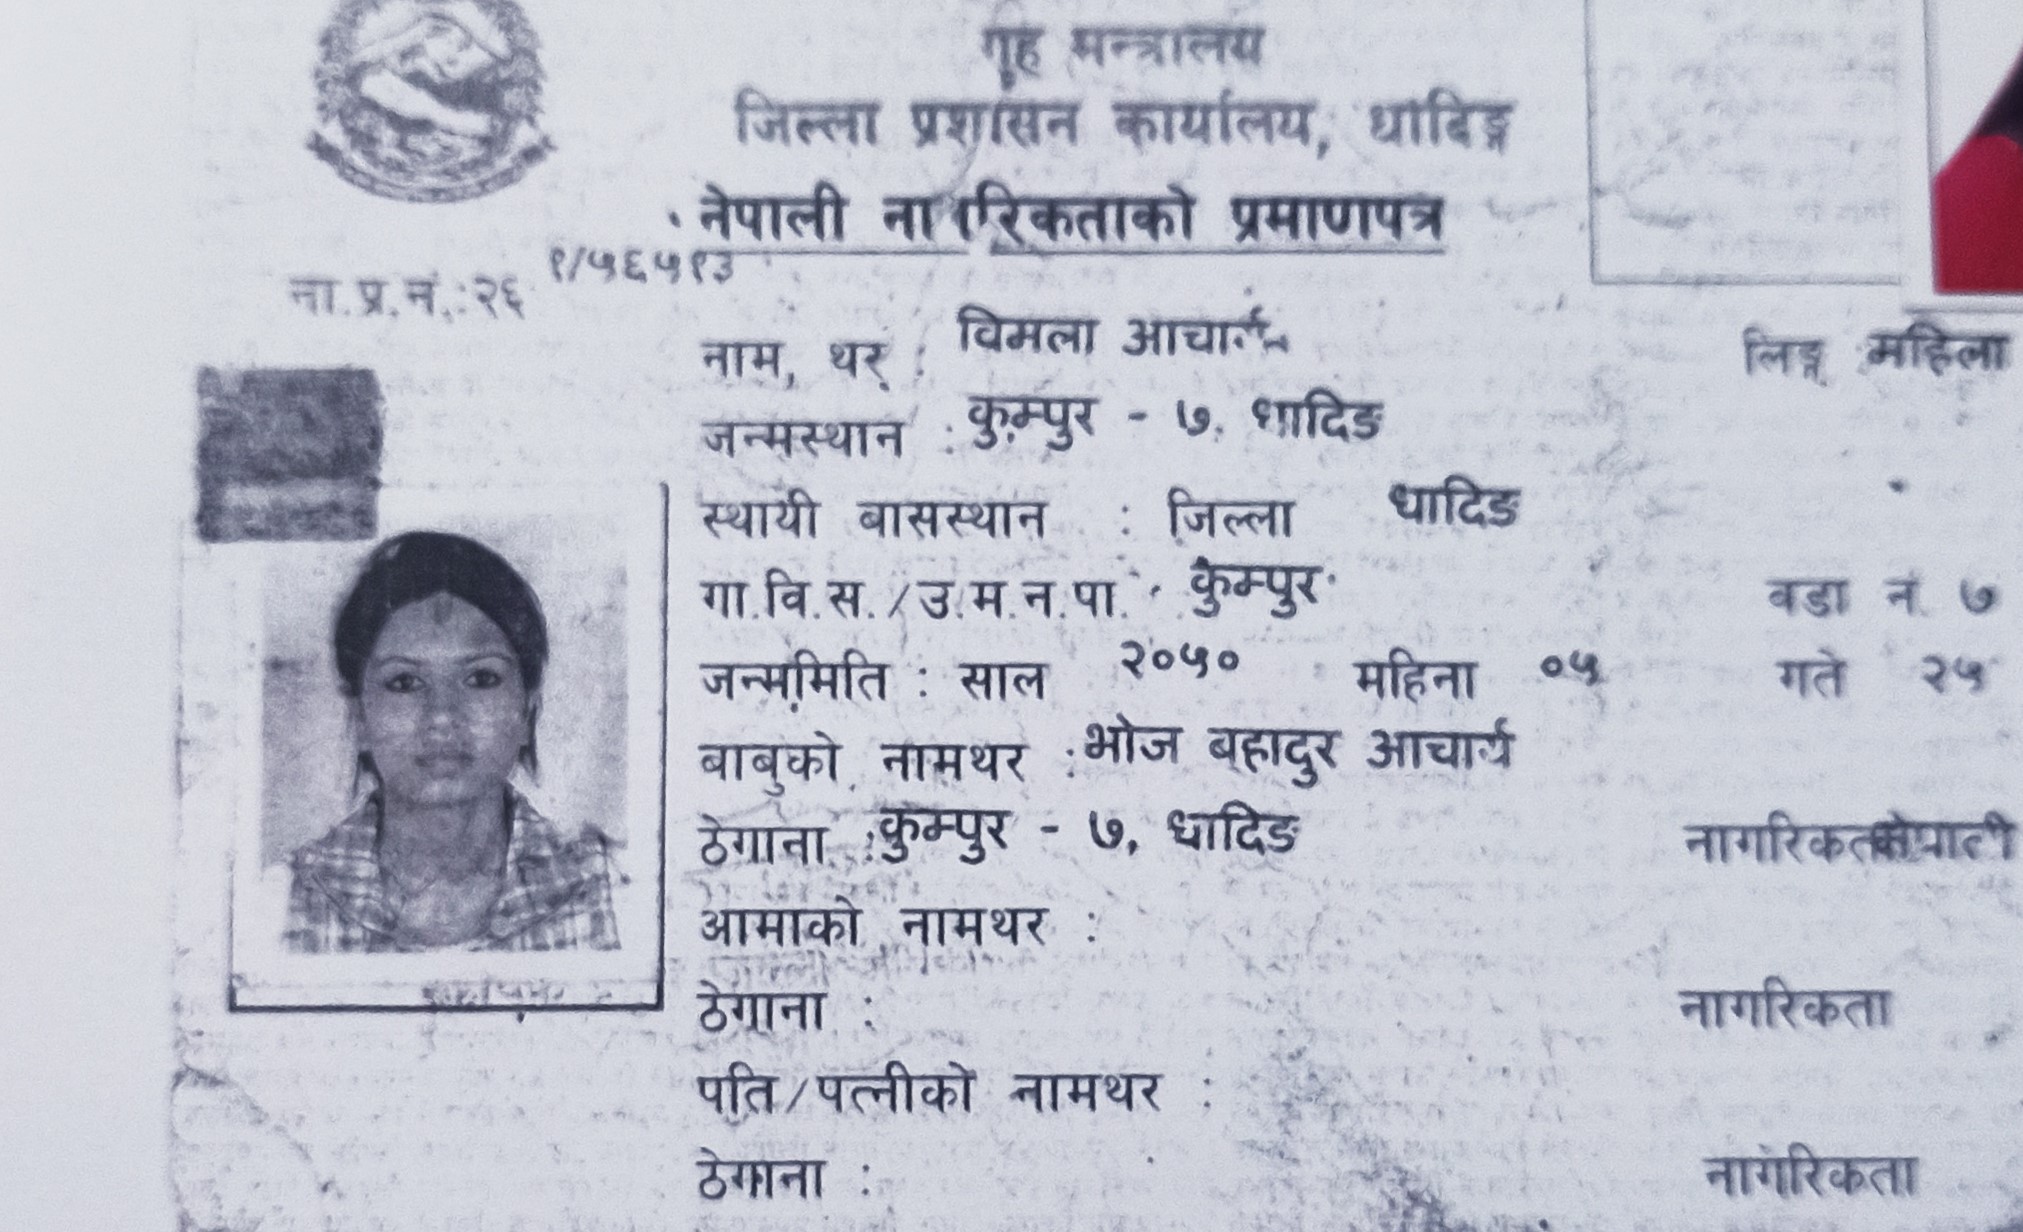 गृह मन्त्रालय
जिल्ला प्रशासन कार्यालय, धादिङ्ग
नेपाली नागरिकताको प्रमाणपत्र
ना.प्र.नं.:२६१/५६५१३
नाम, थर : विमला आचार्य लिङ्ग महिला
जन्मस्थान : कुम्पुर - ७, धादिङ
स्थायी बासस्थान : जिल्ला धादिङ
गा.वि.स./उ.म.न.पा. कुम्पुर वडा नं. ७
जन्ममिति : साल २०५० महिना ०५ गते २५
बाबुको नामथर : भोज बहादुर आचार्य
ठेगाना : कुम्पुर - ७, धादिङ नागरिकता नेपाली
आमाको नामथर :
ठेगाना : नागरिकता
पति/पत्नीको नामथर :
ठेगाना : नागरिकता